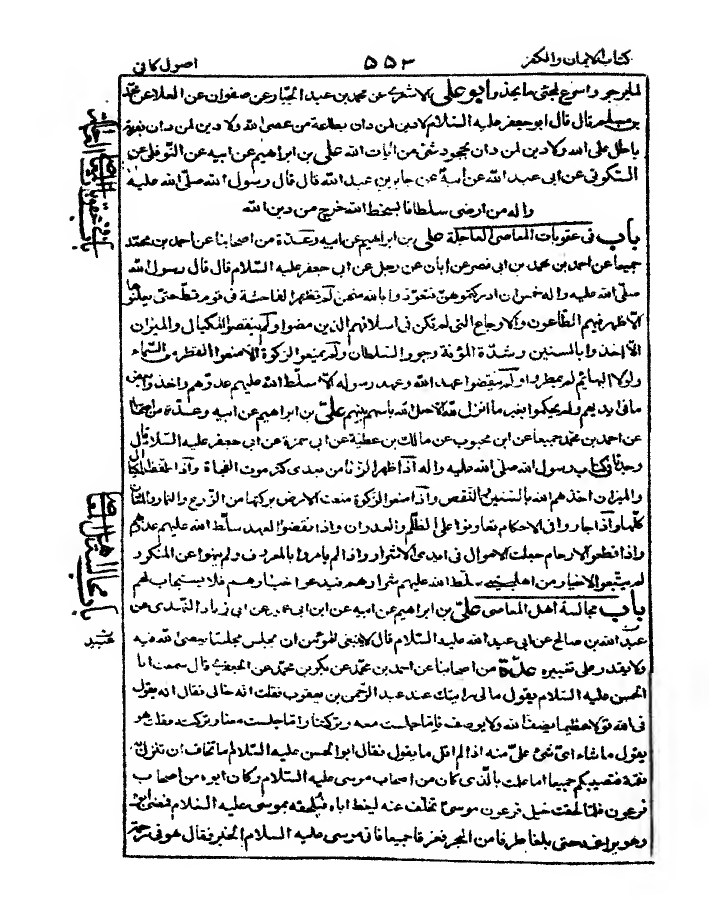 كتاب الايمان والكفر ٥٥٢ اصول كافى
لما يرجو واسرع لمجئ ما يحذر ابو على الاشعرى عن محمد بن عبد الجبار عن صفوان عن العلا عن محمد
بن مسلم قال قال ابو جعفر عليه السلام لا دين لمن دان بطاعة من عصى الله ولا دين لمن دان بفرية
باطل على الله ولا دين لمن دان بجحود شئ من ايات الله على بن ابراهيم عن ابيه عن النوفلى عن
السكونى عن ابى عبد الله عن ابيه عن جابر بن عبد الله قال قال رسول الله صلى الله عليه
واله من ارضى سلطانا بسخط الله خرج من دين الله
باب فى عقوبات المعاصى العاجلة على بن ابراهيم عن ابيه وعدة من اصحابنا عن احمد بن محمد
جميعا عن احمد بن محمد بن ابى نصر عن ابان عن رجل عن ابى جعفر عليه السلام قال قال رسول الله
صلى الله عليه واله خمس ان ادركتموهن فتعوذوا بالله منهن لم تظهر الفاحشة فى قوم قط حتى يعلنوها
الا ظهر فيهم الطاعون والاوجاع التى لم تكن فى اسلافهم الذين مضوا ولم ينقصوا المكيال والميزان
الا اخذوا بالسنين وشدة المؤنة وجور السلطان ولم يمنعوا الزكوة الا منعوا القطر من السماء
ولولا البهائم لم يمطروا ولم ينقضوا عهد الله وعهد رسوله الا سلط الله عليهم عدوهم واخذوا بعض
ما فى ايديهم ولم يحكموا بغير ما انزل الله الا جعل الله باسهم بينهم على بن ابراهيم عن ابيه وعدة من اصحابنا
عن احمد بن محمد جميعا عن ابن محبوب عن مالك بن عطية عن ابى حمزة عن ابى جعفر عليه السلام قال
وجدنا فى كتاب رسول الله صلى الله عليه واله اذا ظهر الزنا من بعدى كثر موت الفجاة واذا طفف المكيال
والميزان اخذهم الله بالسنين والنقص واذا منعوا الزكوة منعت الارض بركتها من الزرع والثمار والمعادن
كلها واذا جاروا فى الاحكام تعاونوا على الظلم والعدوان واذا نقضوا العهد سلط الله عليهم عدوهم
واذا قطعوا الارحام جعلت الاموال فى ايدى الاشرار واذا لم يامروا بالمعروف ولم ينهوا عن المنكر و
لم يتبعوا الاخيار من اهل بيتى سلط الله عليهم شرارهم فيدعوا خيارهم فلا يستجاب لهم
باب مجالسة اهل المعاصى على بن ابراهيم عن ابيه عن ابن ابى عمير عن ابى زياد النهدى عن
عبد الله بن صالح عن ابى عبد الله عليه السلام قال لا ينبغى للمؤمن ان يجلس مجلسا يعصى الله فيه
ولا يقدر على تغييره عدة من اصحابنا عن احمد بن محمد عن بكر بن محمد عن الجعفرى قال سمعت ابا
الحسن عليه السلام يقول ما لى رايتك عند عبد الرحمن بن يعقوب فقلت انه خالى فقال انه يقول
فى الله قولا عظيما يصف الله ولا يوصف فاما جلست معه وتركتنا واما جلست معنا وتركته فقلت هو
يقول ما شاء اى شئ على منه اذا لم اقل ما يقول فقال ابو الحسن عليه السلام اما تخاف ان تنزل به
نقمة فتصيبكم جميعا اما علمت بالذى كان من اصحاب موسى عليه السلام وكان ابوه من اصحاب
فرعون فلما لحقت خيل فرعون موسى تخلف عنه ليعظ اباه فيلحقه بموسى عليه السلام فمضى ابوه
وهو يراغمه حتى بلغا طرفا من البحر فغرقا جميعا فاتى موسى عليه السلام الخبر فقال هو فى رحمة
باب مجالسة اهل المعاصى